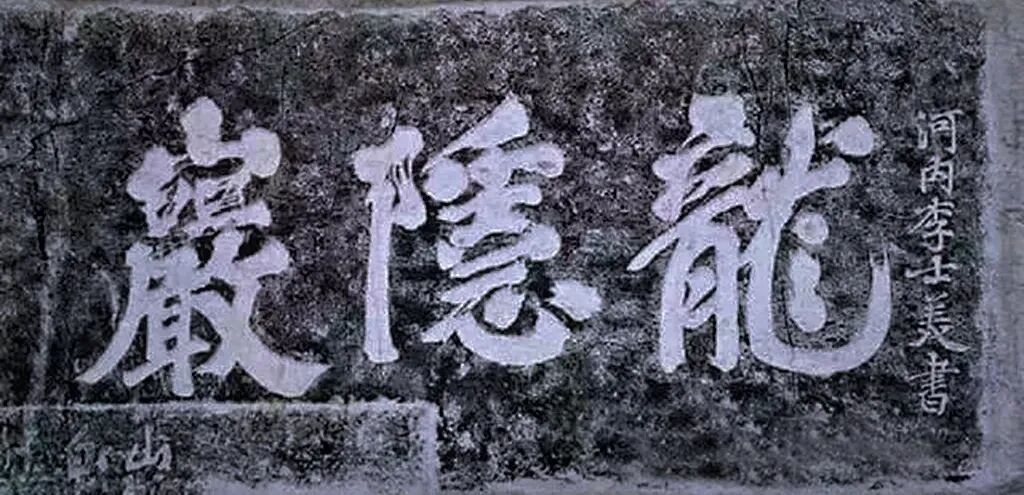 龍隱巖
河内李士美書
山